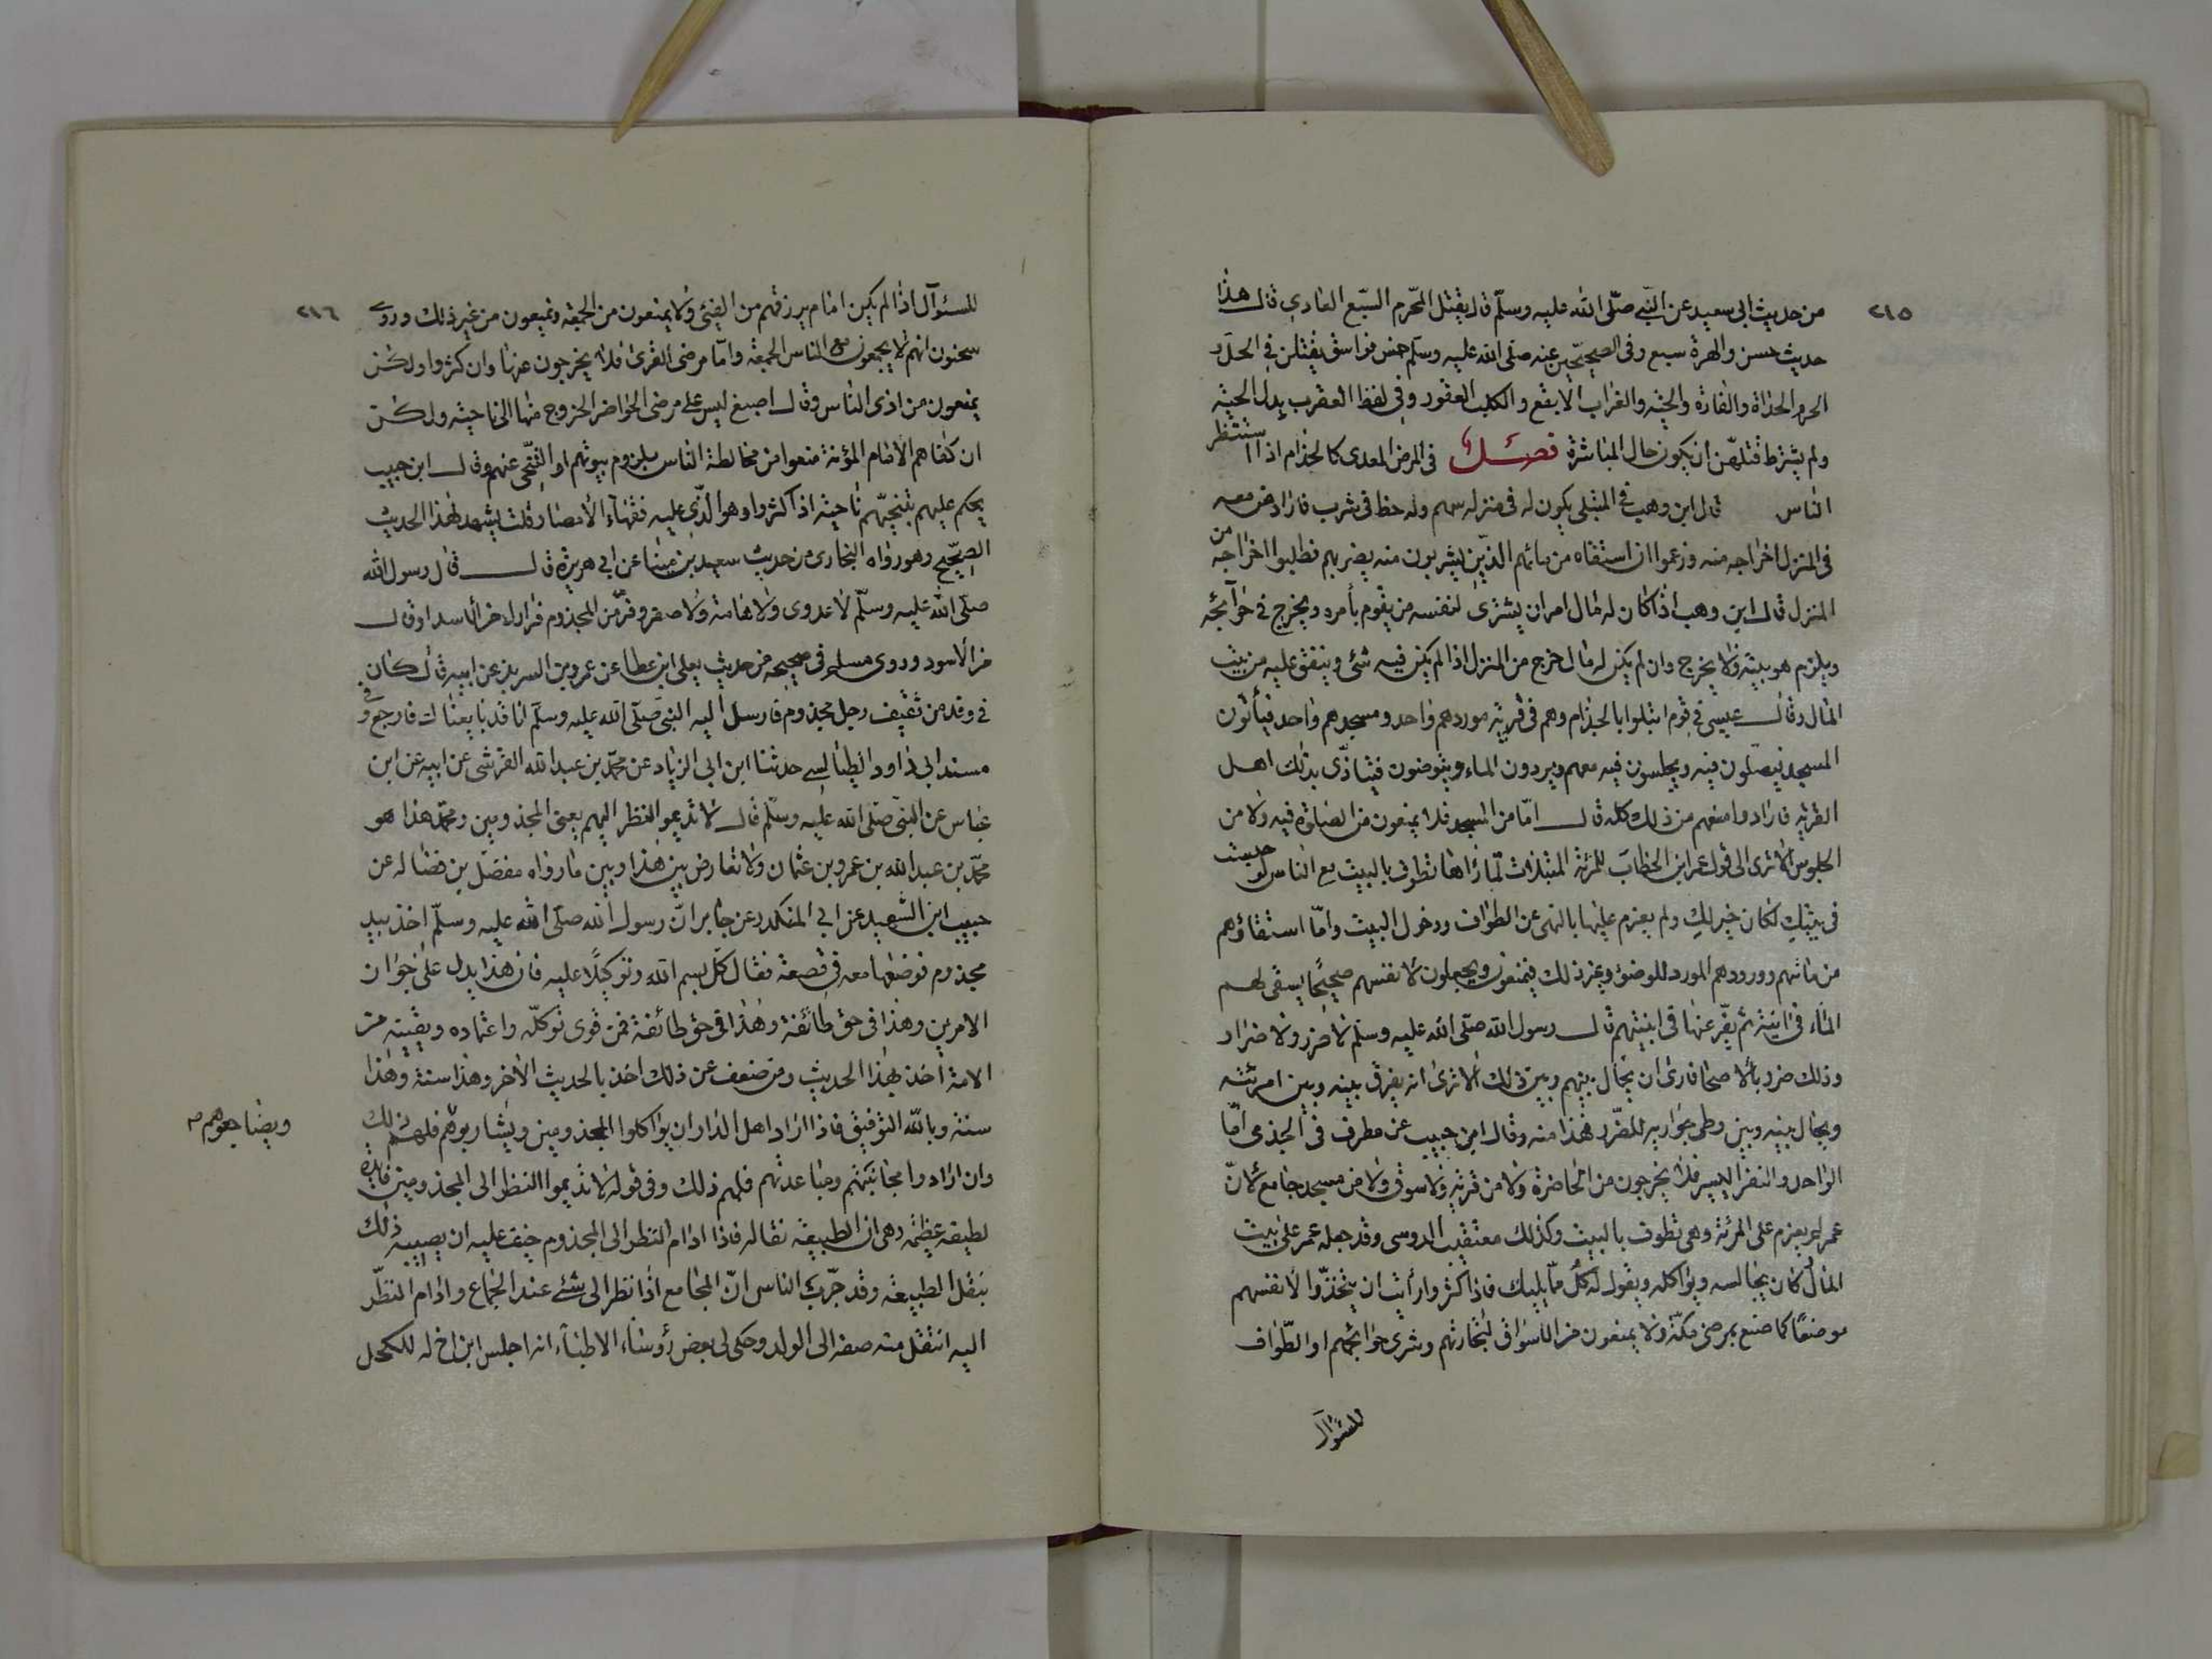 ٢١٥
من حديث ابى سعيد عن النبى صلّى الله عليه وسلّم قال يقتل المحرم السبع العادى قال هذا
حديث حسن والهرة سبع وفى الصحيحين عنه صلى الله عليه وسلم خمس فواسق يقتلن فى الحل و
الحرم الحداة والفارة والحية والغراب الابقع والكلب العقور وفى لفظ العقرب بدل الحية
ولم يشترط قتلهن ان يكون حال المباشرة فصل فى المرض المعدى كالجذام اذا استنظر
الناس قال ابن وهب فى المبتلى يكون له فى منزله سهم وله حظ فى شرب فاراد من معه
فى المنزل اخراجه منه وزعموا ان استقاه من مائهم الذين يشربون منه يضر بهم فطلبوا اخراجه من
المنزل قال ابن وهب اذا كان له مال امر ان يشترى لنفسه من يقوم بأمره ويخرج فى حوآئجه
ويلزم هو بيته ولا يخرج وان لم يكن له مال خرج من المنزل اذا لم يكن فيه شئ وينفق عليه من بيت
المال وقال عيسى فى قوم ابتلوا بالجذام وهم فى قرية موردهم واحد ومسجدهم واحد فيأتون
المسجد فيصلون فيه ويجلسون فيه معهم ويردون الماء ويتوضون فيتاذى بذلك اهل
القرية فارادوا منعهم من ذلك كله قال امّا من المسجد فلا يمنعون من الصلوة فيه ولا من
الجلوس الا ترى الى قول عمر ابن الخطاب للمرئة المبتلات لما راها تطوف بالبيت مع الناس لو جلست
فى بيتك لكان خير لك ولم يعزم عليها بالنهى عن الطواف ودخول البيت وامّا استقاؤهم
من مائهم وورودهم المورد للوضؤ وغير ذلك فيمنعون ويجعلون لانفسهم صحيحًا يستقى لهم
المآء فى انية ثم يفرغها فى انيتهم قال رسول الله صلى الله عليه وسلم لا ضرر ولا ضرار
وذلك ضرر بالاصحا فارى ان يحال بينهم وبين ذلك الا ترى انه يفرق بينه وبين امرئته
ويحال بينه وبين وطى جواريه للضرر فهذا منه وقال ابن حبيب عن مطرف فى الجذمى امّا
الواحد والنفر اليسير فلا يخرجون من الحاضرة ولا من قرية ولا سوق ولا من مسجد جامع لانّ
عمر لم يعزم على المرئة وهى تطوف بالبيت وكذلك معيقيب الدوسى وقد جعله عمر على بيت
المال وكان يجالسه ويؤاكله ويقول له كل مما يليك فاذا كثروا رأيت ان يتخذوا لانفسهم
موضعًا كما صنع بمرضى مكة ولا يمنعون من الاسواق لتجارتهم وشرى حوائجهم او الطواف
للسئوآل
٢١٦
للسئوآل اذا لم يكن امام يرزقهم من الفيئ ولا يمنعون من الجمعة ويمنعون من غير ذلك وروى
سحنون انهم لا يجمعون مع الناس الجمعة وامّا مرضى القرى فلا يخرجون عنها وان كثروا ولكن
يمنعون من اذى الناس وقال اصبغ ليس على مرضى الحواضر الخروج منها الى ناحية ولكن
ان كفاهم الامام المؤنة منعوا من مخالطة الناس بلزوم بيوتهم او التنحى عنهم وقال ابن حبيب
يحكم عليهم بتنحيتهم ناحية اذا كثروا وهو الذى عليه فقهآء الامصار قلت يشهد لهذا الحديث
الصحيح وهو رواه البخارى من حديث سعيد بن مينا عن ابى هريرة قال قال رسول الله
صلى الله عليه وسلّم لا عدوى ولا هامة ولا صفر وفرّ من المجذوم فرارك من الاسد او قال
من الاسود وروى مسلم فى صحيحه من حديث يعلى ابن عطا عن عمرو بن السريد عن ابيه قال كان
فى وفد من ثقيف رجل مجذوم فارسل اليه النبى صلى الله عليه وسلم انا قد بايعناك فارجع وفى
مسند ابى داود الطيالسى حدثنا ابن ابى الزياد عن محمّد بن عبد الله القرشى عن ابيه عن ابن
عباس عن النبى صلى الله عليه وسلّم قال لا تديموا النظر اليهم يعنى المجذومين ومحمّد هذا هو
محمّد بن عبد الله بن عمرو بن عثمان ولا تعارض بين هذا وبين ما رواه مفضل بن فضاله عن
حبيب ابن الشهيد عن ابى المنكدر عن جابر انّ رسول الله صلّى الله عليه وسلّم اخذ بيد
مجذوم فوضعها معه فى قصعة فقال كل بسم الله وتوكّلًا عليه فان هذا يدل على جواز
الامرين وهذا فى حق طائفة وهذا فى حق طائفة فمن قوى توكله واعتماده ويقينه من
الامة اخذ بهذا الحديث ومن ضعف عن ذلك اخذ بالحديث الاخر وهذا سنة وهذا
سنة وبالله التوفيق فاذا اراد اهل الدار ان يواكلوا المجذومين ويشاربوهم فلهم ذلك
ويضاجعوهم صح
وان ارادوا مجانبتهم ومباعدتهم فلهم ذلك وفى قوله لا تديموا النظر الى المجذومين فايدة
لطيفة عظيمة وهى ان الطبيعة نقالة فاذا ادام النظر الى المجذوم خيف عليه ان يصيبه ذلك
بنقل الطبيعة وقد جرّب الناس انّ المجامع اذا نظر الى شئ عند الجماع وادام النظر
اليه انتقل منه صفة الى الولد وحكى لى بعض رؤساء الاطباء انه اجلس ابن اخ له للكحل